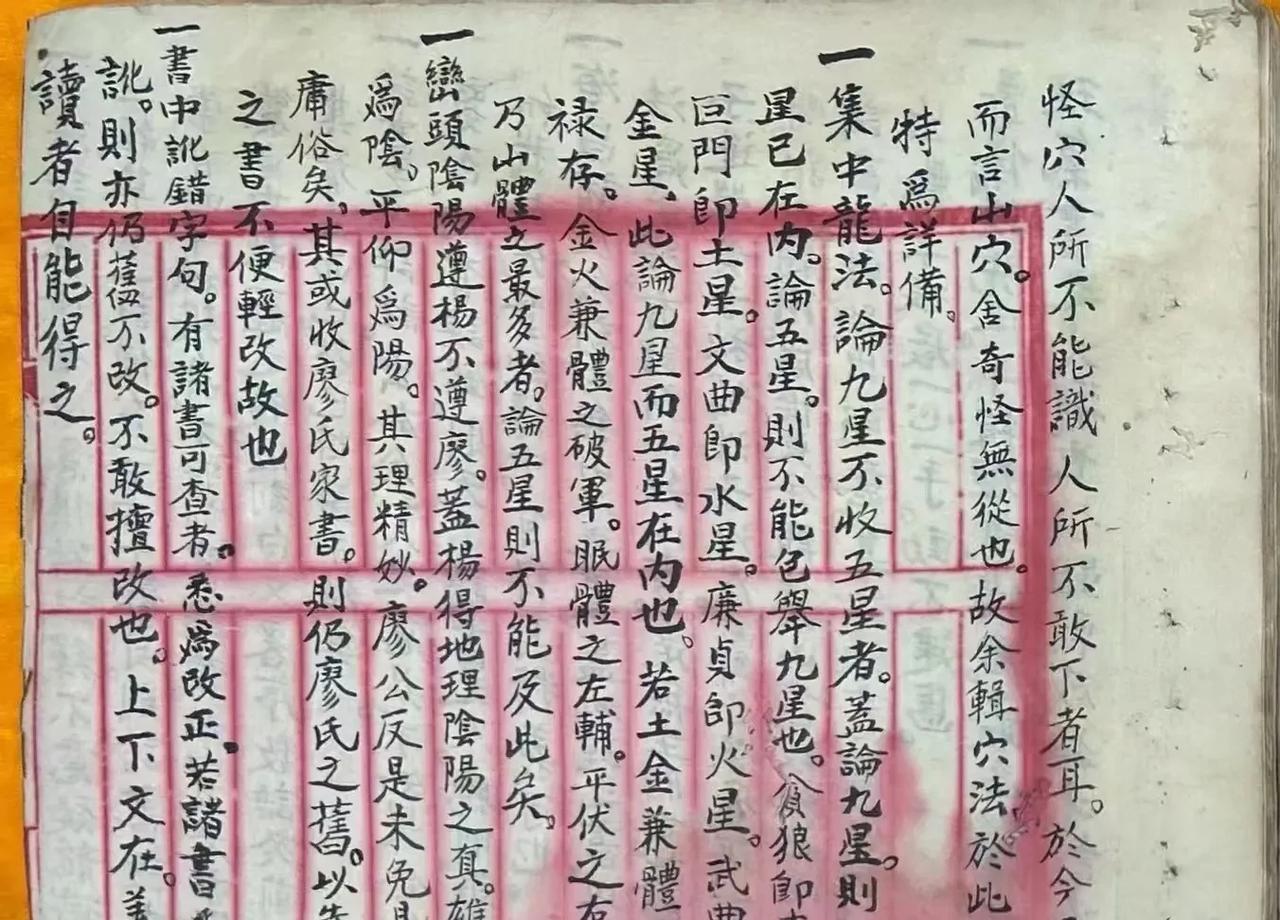 怪穴人所不能識人所不敢下者耳。於今
而言山穴。舍奇怪無從也。故余輯穴法於此
特爲詳備。
一集中龍法。論九星不收五星者。蓋論九星。則
星已在內。論五星。則不能包舉九星也。貪狼卽
巨門卽土星。文曲卽水星。廉貞卽火星。武曲
金星。此論九星而五星在內也。若土金兼體
祿存。金火兼體之破軍。眠體之左輔。平伏之右
乃山體之最多者。論五星則不能及此矣。
一巒頭陰陽遵楊不遵廖。蓋楊得地理陰陽之真。雄
爲陰。平仰爲陽。其理精妙。廖公反是未免
庸俗矣。其或收廖氏家書。則仍廖氏之舊。以
之書不便輕改故也
一書中訛錯字句。有諸書可查者。悉爲改正。若諸書
訛。則亦仍舊不改。不敢擅改也。上下文在。
讀者自能得之。